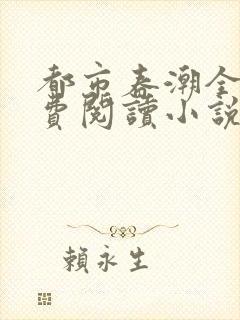 都市春潮全
費閱讀小說
賴永生